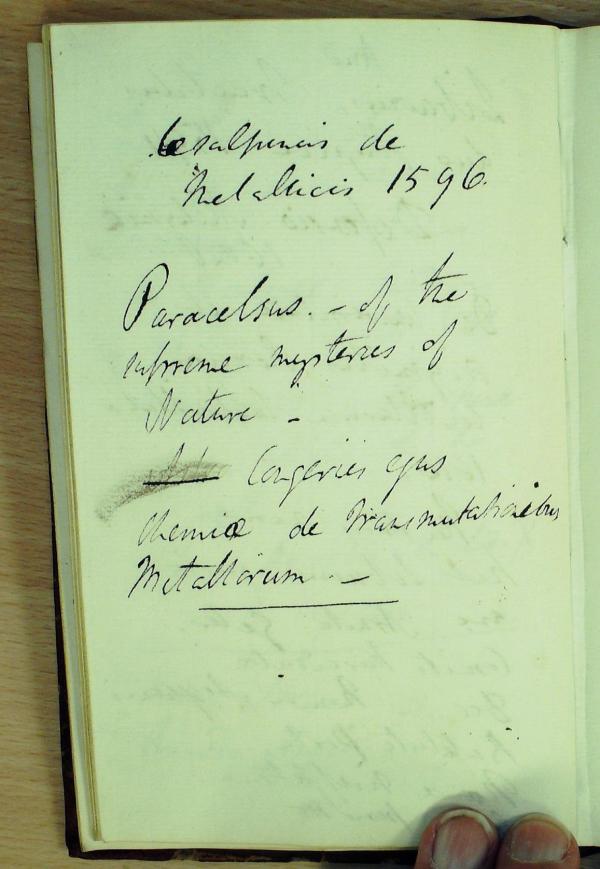 Cesalpinis de
Metallicis 1596.
Paracelsus. – of the
supreme mysteries of
Nature –
Congeries ejus
Chemiæ de transmutationibus
Metallorum. –